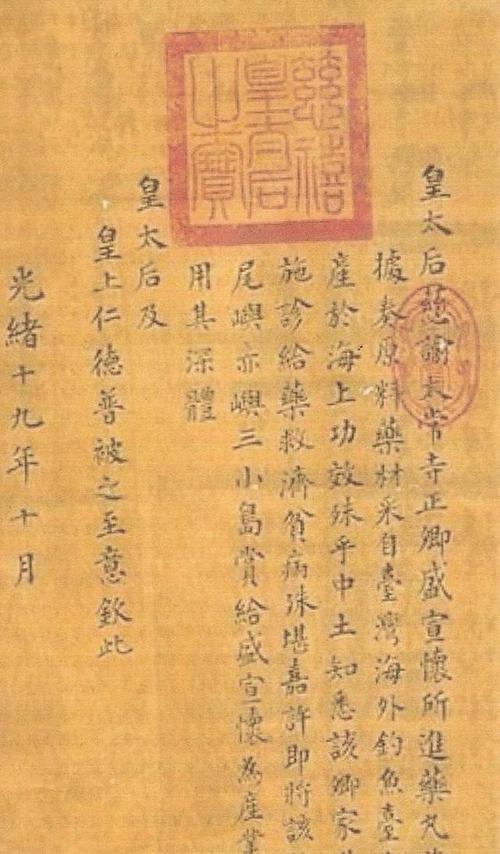 慈禧
皇太后
之寶
皇太后慈諭太常寺正卿盛宣懷所進藥丸
據奏原料藥材采自臺灣海外釣魚臺
產於海上功效殊乎中土知悉該卿家
施診給藥救濟貧病殊堪嘉許即將該
尾嶼赤嶼三小島賞給盛宣懷為產業
用其深體
皇太后及
皇上仁德普被之至意欽此
光緒十九年十月